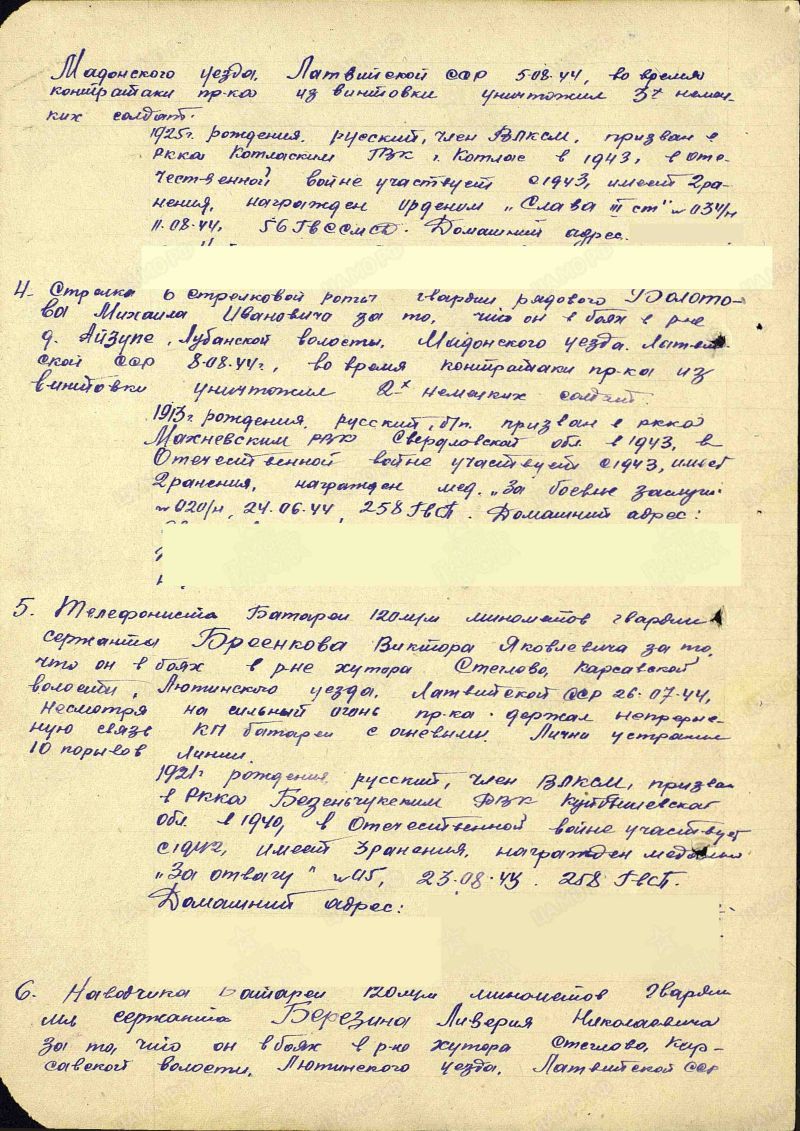 Мадонского уезда, Латвийской ССР 5.08.44, во время
контратаки пр-ка из винтовки уничтожил 3х немец-
ких солдат.
1925г. рождения, русский, член ВЛКСМ, призван в
РККА Котласким РВК г. Котлас в 1943, в Оте-
чественной войне участвует с 1943, имеет 2 ра-
нения, награжден орденом „Слава III ст" № 034/н
11.08.44, 56 ГвССмСД. Домашний адрес.
4. Стрелка 6 стрелковой роты гвардии рядового Болото-
ва Михаила Ивановича за то, что он в боях в р-не
д. Айзупе, Лубанской волости, Мадонского уезда, Латвий-
ской ССР 8.08.44г., во время контратаки пр-ка из
винтовки уничтожил 2х немецких солдат.
1913г. рождения, русский, б/п. призван в РККА
Махневским РВК Свердловской обл. в 1943, в
Отечественной войне участвует с 1943, имеет
2 ранения, награжден мед. „За боевые заслуги"
№ 020/н, 24.06.44, 258 ГвСП. Домашний адрес:
5. Телефониста Батареи 120м/м минометов гвардии
сержанта Бреенкова Виктора Яковлевича за то,
что он в боях в р-не хутора Стеглово, Карсавской
волости, Лютинского уезда, Латвийской ССР 26.07.44,
несмотря на сильный огонь пр-ка держал непрерыв-
ную связь КП батареи с огневыми. Лично устранил
10 порывов линии.
1921г рождения, русский, член ВЛКСМ, призван
в РККА Безенчукским РВК Куйбышевской
обл. в 1940, в Отечественной войне участвует
с 1942, имеет 3 ранения, награжден медалью
„За отвагу" № 05, 23.08.43. 258 ГвСП.
Домашний адрес:
6. Наводчика Батареи 120м/м минометов гвардии
мл сержанта Березина Ливерия Николаевича
за то, что он в боях в р-не хутора Стеглово, Кар-
савской волости, Лютинского уезда, Латвийской ССР